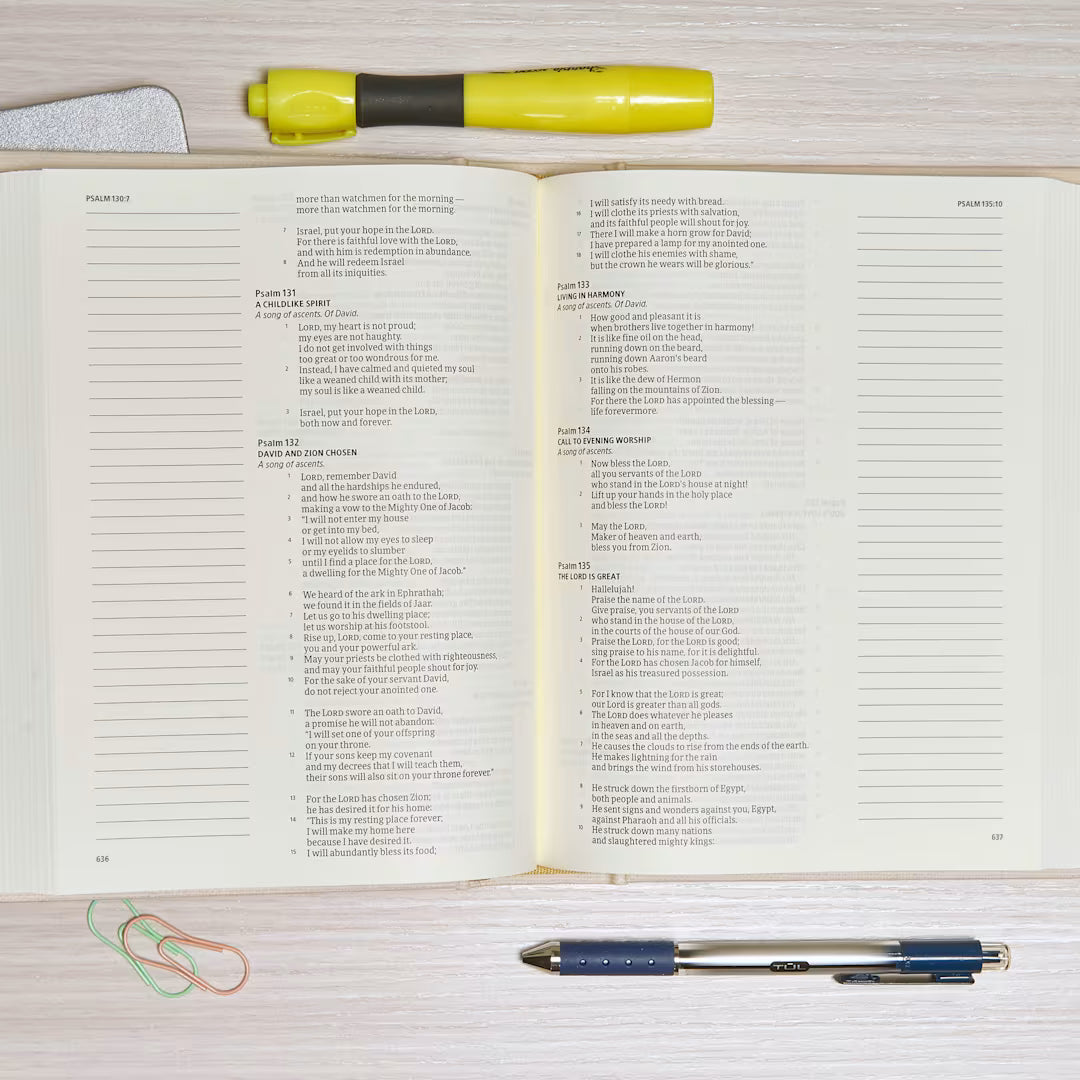 PSALM 130:7
more than watchmen for the morning —
more than watchmen for the morning.
7 Israel, put your hope in the LORD.
For there is faithful love with the LORD,
and with him is redemption in abundance.
8 And he will redeem Israel
from all its iniquities.
Psalm 131
A CHILDLIKE SPIRIT
A song of ascents. Of David.
1 LORD, my heart is not proud;
my eyes are not haughty.
I do not get involved with things
too great or too wondrous for me.
2 Instead, I have calmed and quieted my soul
like a weaned child with its mother;
my soul is like a weaned child.
3 Israel, put your hope in the LORD,
both now and forever.
Psalm 132
DAVID AND ZION CHOSEN
A song of ascents.
1 LORD, remember David
and all the hardships he endured,
2 and how he swore an oath to the LORD,
making a vow to the Mighty One of Jacob:
3 "I will not enter my house
or get into my bed,
4 I will not allow my eyes to sleep
or my eyelids to slumber
5 until I find a place for the LORD,
a dwelling for the Mighty One of Jacob."
6 We heard of the ark in Ephrathah;
we found it in the fields of Jaar.
7 Let us go to his dwelling place;
let us worship at his footstool.
8 Rise up, LORD, come to your resting place,
you and your powerful ark.
9 May your priests be clothed with righteousness,
and may your faithful people shout for joy.
10 For the sake of your servant David,
do not reject your anointed one.
11 The LORD swore an oath to David,
a promise he will not abandon:
"I will set one of your offspring
on your throne.
12 If your sons keep my covenant
and my decrees that I will teach them,
their sons will also sit on your throne forever."
13 For the LORD has chosen Zion;
he has desired it for his home:
14 "This is my resting place forever;
I will make my home here
because I have desired it.
15 I will abundantly bless its food;
636
PSALM 135:10
I will satisfy its needy with bread.
16 I will clothe its priests with salvation,
and its faithful people will shout for joy.
17 There I will make a horn grow for David;
I have prepared a lamp for my anointed one.
18 I will clothe his enemies with shame,
but the crown he wears will be glorious."
Psalm 133
LIVING IN HARMONY
A song of ascents. Of David.
1 How good and pleasant it is
when brothers live together in harmony!
2 It is like fine oil on the head,
running down on the beard,
running down Aaron's beard
onto his robes.
3 It is like the dew of Hermon
falling on the mountains of Zion.
For there the LORD has appointed the blessing —
life forevermore.
Psalm 134
CALL TO EVENING WORSHIP
A song of ascents.
1 Now bless the LORD,
all you servants of the LORD
who stand in the LORD's house at night!
2 Lift up your hands in the holy place
and bless the LORD!
3 May the LORD,
Maker of heaven and earth,
bless you from Zion.
Psalm 135
THE LORD IS GREAT
1 Hallelujah!
Praise the name of the LORD.
Give praise, you servants of the LORD
2 who stand in the house of the LORD,
in the courts of the house of our God.
3 Praise the LORD, for the LORD is good;
sing praise to his name, for it is delightful.
4 For the LORD has chosen Jacob for himself,
Israel as his treasured possession.
5 For I know that the LORD is great;
our Lord is greater than all gods.
6 The LORD does whatever he pleases
in heaven and on earth,
in the seas and all the depths.
7 He causes the clouds to rise from the ends of the earth.
He makes lightning for the rain
and brings the wind from his storehouses.
8 He struck down the firstborn of Egypt,
both people and animals.
9 He sent signs and wonders against you, Egypt,
against Pharaoh and all his officials.
10 He struck down many nations
and slaughtered mighty kings:
637
TUL